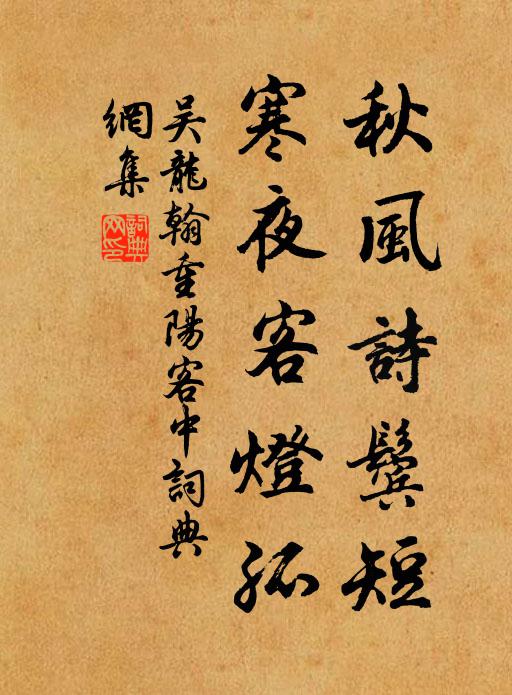 秋風詩鬢短
寒夜客燈孤
吴龍翰重陽客中詞典
網集
詞典
网印